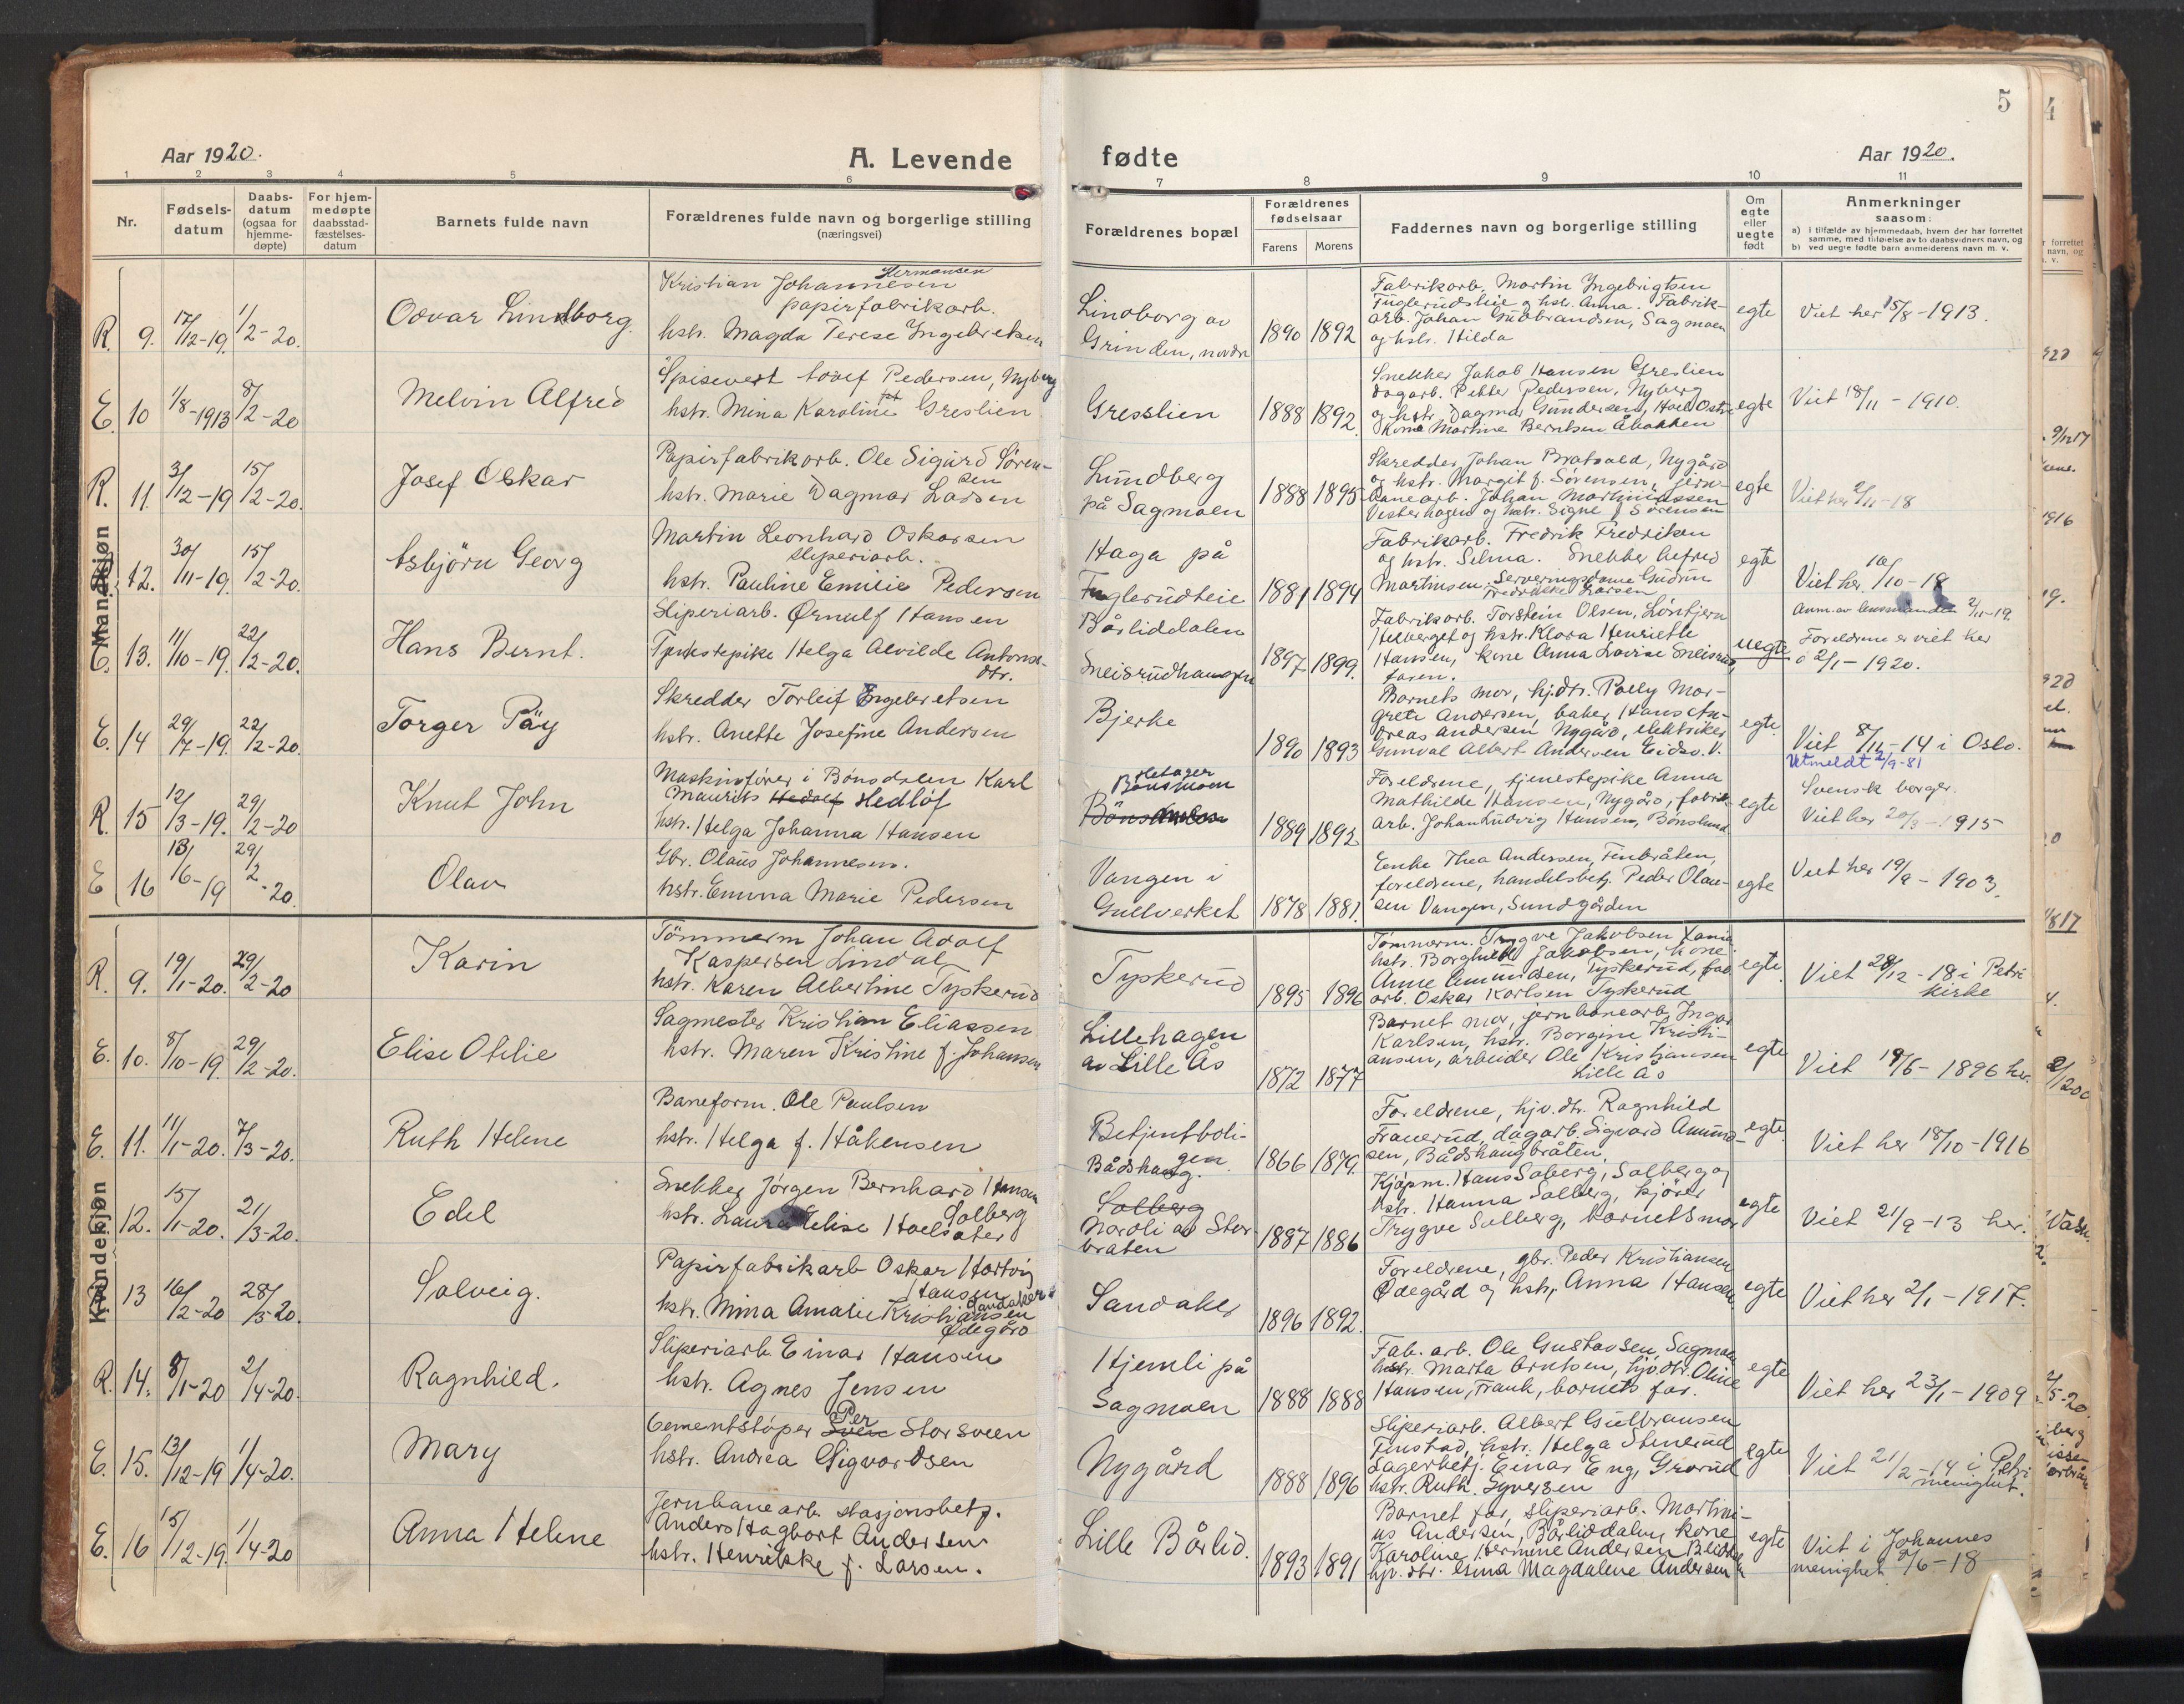 5
4
Aar 1920.
A. Levende
fødte
Aar 1920.
1 2 3 4 5 6 7 8 9 10 11
Nr.
Fødsels-
datum
Daabs-
datum
(ogsaa for
hjemme-
døpte)
For hjem-
medøpte
daabsstad-
fæstelses-
datum
Barnets fulde navn
Forældrenes fulde navn og borgerlige stilling
(næringsvei)
Forældrenes bopæl
Forældrenes
fødselsaar
Farens
Morens
Faddernes navn og borgerlige stilling
Om
egte
eller
uegte
født
Anmerkninger
saasom:
a) i tilfælde av hjemmedaab, hvem der har forrettet
samme, med tilføielse av to daabsvidners navn, og
b) ved uegte fødte barn anmelderens navn m. v.
Mandkjøn
R. 9. 17/12-19. 1/2-20.
Odvar Lindborg.
Hermansen
Kristian Johannesen
papirfabrikarb.
hstr. Magda Terese Ingebretsen
Lindborg av
Grinden, nordre
1890 1892
Fabrikarb. Martin Ingebrigtsen
Fuglerudsteie og hstr. Anna. Fabrik-
arb. Johan Gudbrandsen, Sagmoen
og hstr. Hilda
egte
Viet her 15/8-1913.
E. 10 1/8-1913 8/2-20
Melvin Alfred
Spisevert Adolf Pedersen, Nyberg
hstr. Mina Karoline Greslien
Gresslien
1888 1892.
Snekker Jakob Hansen Greslien
dagarb. Petter Pedersen, Nyberg
og hstr. Dagmar Gundersen,
Kone Martine Berntsen Åbakken
egte
Viet 18/11-1910.
R. 11. 3/12-19 15/2-20.
Josef Oskar
Papirfabrikarb. Ole Sigurd Sören-
sen
hstr. Marie Dagmar Larsen
Lundberg
på Sagmoen
1888 1895
Skredder Johan Bratvald, Nygård
og hstr. Margit f. Sørensen, jern-
banearb. Johan Martiniussen
Vesterhagen og hstr. Signe f. Sørensen
egte
Viet her 2/11-18
12. 30/11-19. 15/2-20.
Asbjörn Georg
Martin Leonhard Oskarsen
sliperiarb.
hstr. Pauline Emilie Pedersen
Haga på
Fuglerudteie
1881 1894
Fabrikarb. Fredrik Fredriksen
og hstr. Selma. Snekker Alfred
Martinsen. Serveringsdame Gudrun
Fredrikke Larsen
egte
Viet her 10/10-18
E. 13. 11/10-19. 22/2-20.
Hans Bernt.
Sliperiarb. Ørnulf Hansen
Tjenestepike Helga Alvilde Antons-
dtr.
Bårliddalen
Sneisrudhaugen
1897 1899.
Fabrikarb. Torstein Olsen, Løntjern
Helberget og hstr. Klara Henriette
Hansen, kone Anna Lovise Sneisrud,
faren.
uegte
Anm. av lensmanden 2/11-19.
Foreldrene er viet her
2/1-1920.
E. 14 29/7-19. 22/2-20.
Torger Päy
Skredder Torleif Engebretsen
hstr. Anette Josefine Andersen
Bjerke
1890 1893
Barnets mor, hj.dtr. Polly Mar-
grete Andersen, baker Hans An-
dreas Andersen Nygård, elektriker
Gunval Albert Andersen Eidsv. V.
egte.
Viet 8/11-14 i Oslo.
Utmeldt 2/9-81
R. 15 12/3-19. 29/2-20
Knut John
Maskinfører i Bönsdalen Karl
Maurits Hedolf Hedlöf
hstr. Helga Johanna Hansen
Bönsmoen
Bönsdalen
1889 1892
Foreldrene, tjenestepike Anna
Mathilde Hansen, Nygård, fabrik-
arb. Johan Ludvig Hansen, Bönslund
egte
Svensk borger.
Viet her 20/3-1915
E 16 13/6-19 29/2-20.
Olav
Gbr. Olaus Johannesen.
hstr. Emma Marie Pedersen
Vangen i
Gullverket
1878 1881.
Enke Thea Andersen, Finbråten,
foreldrene, handelsbetj. Peder Olau-
sen Vangen, Sundgården
egte
Viet her 19/9-1903.
Kvindekjøn
R. 9. 19/1-20. 29/2-20
Karin
Tömmerm Johan Adolf
Kaspersen Lindal
hstr. Karen Albertine Tyskerud
Tyskerud
1895 1896
Tömmerm. Trygve Jakobsen
hstr. Borghild Jakobsen, kone
Anne Amundsen, Tyskerud, fab
arb. Oskar Karlsen Tyskerud
egte.
Viet 28/12-18 i Petri
kirke
E. 10. 8/10-19. 29/2-20.
Elise Otilie
Sagmester Kristian Eliassen
hstr. Maren Kristine f. Johansen
Lillehagen
av Lille Ås
1872 1877
Barnet mor, jernbanearb. Ingar
Karlsen, hstr. Borgine Kristi-
ansen, arbeider Ole Kristiansen
Lille Ås
egte
Viet 19/6-1896 her.
E. 11. 11/1-20. 7/3-20.
Ruth Helene
Baneform. Ole Paulsen
hstr. Helga f. Håkensen
Betjentboli-
gen
Bådshaug.
1866 1879.
Foreldrene, hjv. dtr. Ragnhild
Frauerud, dagarb. Sigvard Amund-
sen, Bådshaugbråten,
egte.
Viet her 18/10-1916
12. 15/1-20. 21/3-20.
Edel
Snekker Jørgen Bernhard Hansen
Solberg
hstr. Laura Elise Hoelsæter
Solberg
Nordli av Stor-
bråten
1887 1886
Kjøpm. Hans Solberg, Solberg og
hstr. Hanna Solberg, kjører
Trygve Solberg, barnets mor
egte
Viet 21/9-13 her.
E. 13 16/2-20 28/3-20.
Solveig.
Papirfabrikarb Oskar Hartvig
Hansen Sandaker
hstr. Mina Amalie Kristiansen
Ödegård
Sandaker
1896 1892.
Foreldrene, gbr. Peder Kristiansen
Ödegård og hstr. Anna Hansen
egte
Viet her 2/1-1917.
R. 14. 8/1-20 2/4-20.
Ragnhild.
Sliperiarb. Einar Hansen
hstr. Agnes Jensen
Hjemli på
Sagmoen
1888 1888
Fab. arb. Ole Gustavsen, Sagmoen
hstr. Marta Arntsen, hjv.dtr. Oline
Hansen, Frank, barnets far.
egte
Viet her 23/1-1909
E. 15. 13/12-19 1/4-20.
Mary
Cementstöper Per Storsveen
hstr. Andrea Sigvardsen
Nygård
1888 1896
Sliperiarb. Albert Gulbransen
Finstad, hstr. Helga Stenerud
Lagerbetj. Einar Eng, Grorud
hstr. Ruth Syversen
egte
Viet 21/2-14 i Petri
menighet.
E. 16 15/12-19. 1/4-20
Anna Helene
Jernbanearb. stasjonsbetj.
Anders Hagbart Andersen
hstr. Henrikke f. Larsen.
Lille Bårlid.
1893 1891
Barnet far, sliperiarb. Martini-
us Andersen, Bårliddalen, kone
Karoline Hermine Andersen
hjv. dtr. Asma Magdalene Andersen
egte
Viet i Johannes
menighet 9/6-18